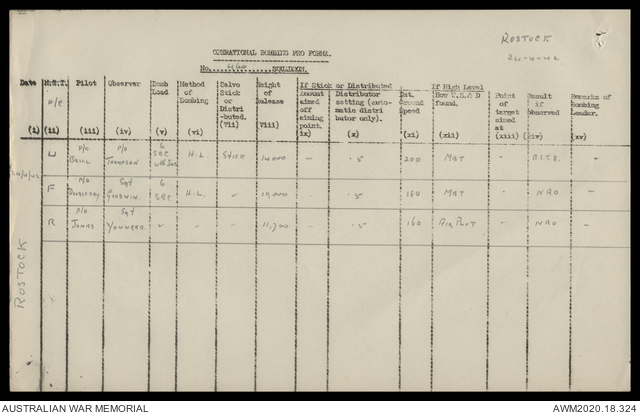 ROSTOCK
24-4-42
OPERATIONAL BOMBING PRO FORMA.
No. 460 SQUADRON.
Date M.S.T. Pilot Observer Bomb Load Method of Bombing Salvo Stick or Distri -buted. Height of Release If Stick or Distributed If High Level Point of target aimed at Result if observed Remarks of Bombing Leader.
A/C
Amount aimed off aiming point. Distributor setting (auto-matic distri butor only). Est. Ground Speed How W.S. & D found.
(i) (ii) (iii) (iv) (v) (vi) (vii) (viii) ix) (x) (xi) (xii) (xiii) (xiv) (xv)
P/O BRILL P/O THOMPSON 6 SBC H.L STICK 14,000 - .5 200 MRT - -
F P/O Sgt GOODWIN 6 SBC H.L. " 10,000 - .5 180 MRT - NRO -
R P/O JONES Sgt YOUNGER " " " 11,700 - .5 160 AIR PLOT - NRO -
ROSTOCK
AUSTRALIAN WAR MEMORIAL
AWM2020.18.324